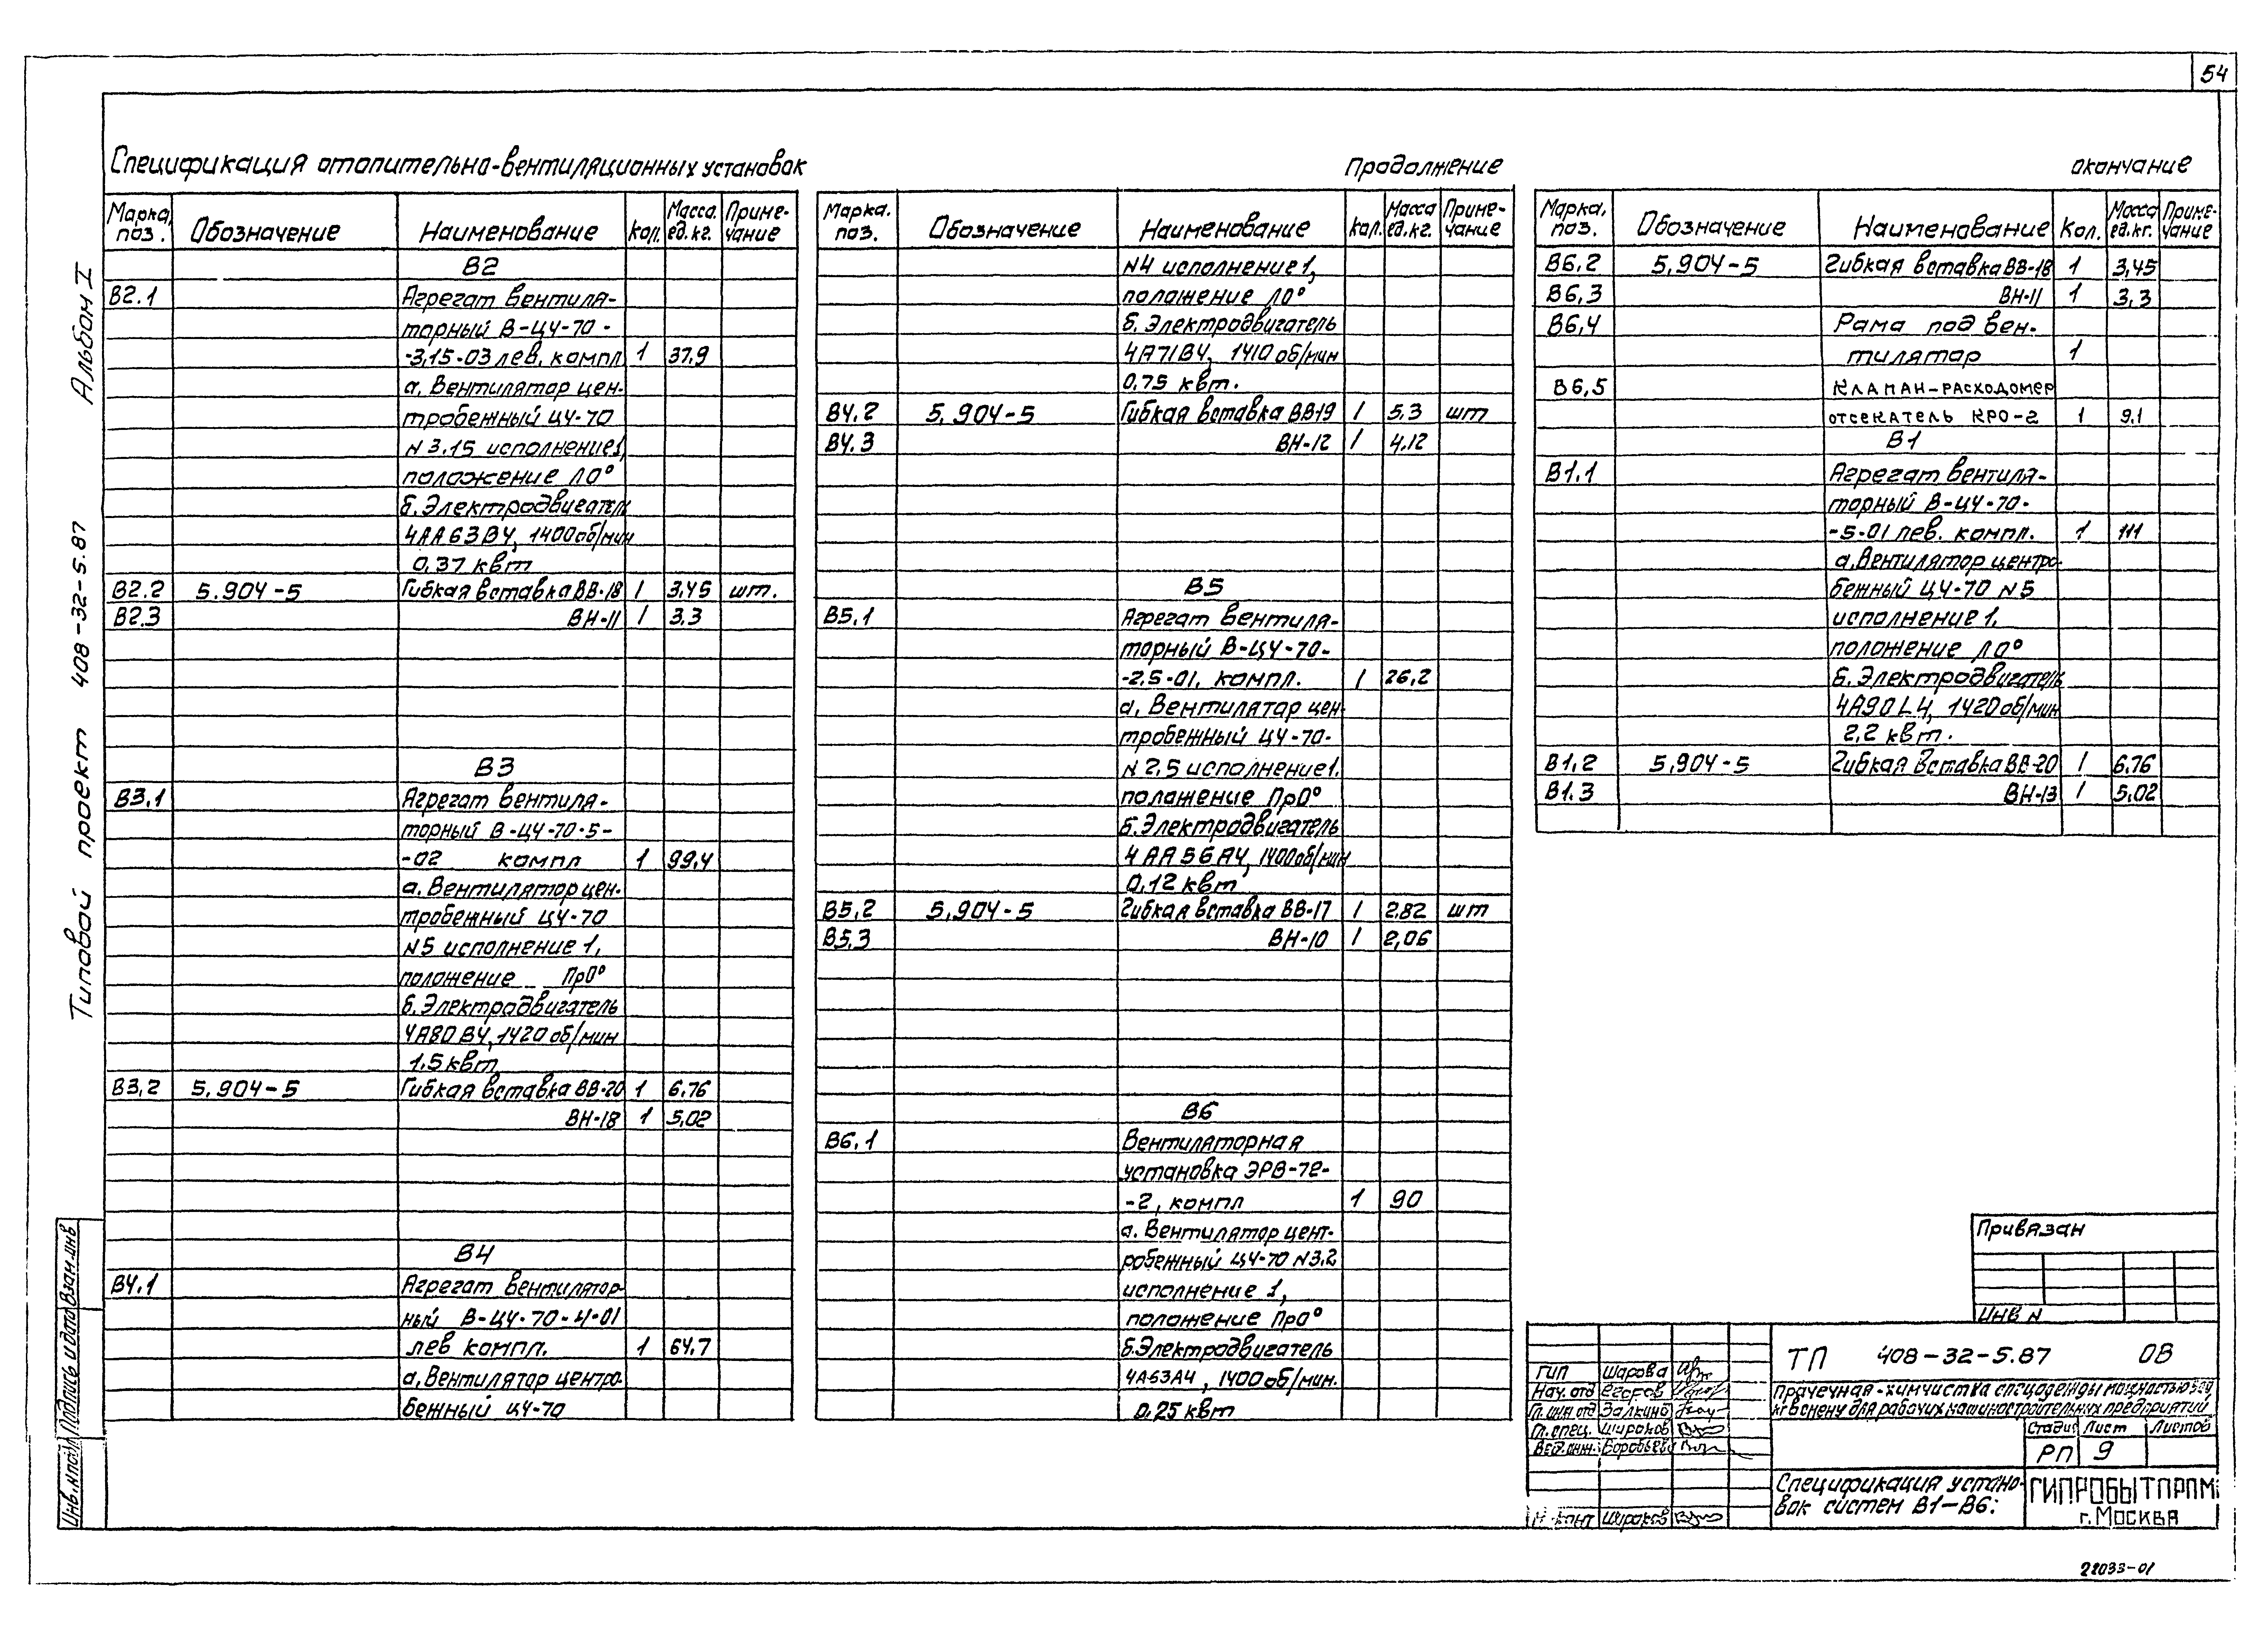 54
Спецификация отопительно-вентиляционных установок
Марка, поз. Обозначение Наименование Кол. Масса ед. кг. Приме-чание
В2
В2.1 Агрегат вентиля-
торный В-Ц4-70-
-3,15-03 лев. компл 1 37,9
а. Вентилятор цен-
тробежный Ц4-70
N 3.15 исполнение 1,
положение Л0°
б. Электродвигатель
4АА63В4, 1400 об/мин
0,37 квт
В2.2 5.904-5 Гибкая вставка ВВ-18 1 3,45 шт.
В2.3 ВН-11 1 3.3
В3
В3.1 Агрегат вентиля-
торный В-Ц4-70-5-
-02 компл 1 99,4
а. Вентилятор цен-
тробежный Ц4-70
N5 исполнение 1,
положение Пр0°
б. Электродвигатель
4А80В4, 1420 об/мин
1,5 квт
В3,2 5.904-5 Гибкая вставка ВВ-20 1 6.76
ВН-18 1 5,02
В4
В4.1 Агрегат вентилятор-
ный В-Ц4-70-4-01
лев компл. 1 64,7
а, Вентилятор центро-
бежный Ц4-70
Продолжение
Марка. поз. Обозначение Наименование Кол. Масса ед. кг. Приме-чание
N4 исполнение 1,
положение Л0°
б. Электродвигатель
4А71В4, 1410 об/мин
0,75 квт.
В4.2 5.904-5 Гибкая вставка ВВ19 1 5,3 шт
В4.3 ВН-12 1 4,12
В5
В5.1 Агрегат вентиля-
торный В-Ц4-70-
-2.5-01, компл. 1 26,2
а, Вентилятор цен-
тробежный Ц4-70-
N 2,5 исполнение 1.
положение Пр0°
б. Электродвигатель
4АА56А4, 1400 об/мин
0,12 квт
В5,2 5.904-5 Гибкая вставка ВВ-17 1 2.82 шт
В5.3 ВН-10 1 2,06
В6
В6.1 Вентиляторная
установка ЭРВ-72-
-2, компл 1 90
а. Вентилятор цент-
робежный Ц4-70 N3.2
исполнение 1,
положение Пр0°
б. Электродвигатель
4А63А4, 1400 об/мин.
0,25 квт
окончание
Марка, поз. Обозначение Наименование Кол. Масса ед. кг. Приме-чание
В6,2 5.904-5 Гибкая вставка ВВ-18 1 3,45
В6,3 ВН-11 1 3,3
В6,4 Рама под вен-
тилятор 1
В6,5 Клапан-расходомер
отсекатель КРО-2 1 9,1
В1
В1.1 Агрегат вентиля-
торный В-Ц4-70-
-5-01 лев. компл. 1 111
а, Вентилятор центро-
бежный Ц4-70 N5
исполнение 1.
положение Л0°
б. Электродвигатель
4А90L4, 1420 об/мин
2,2 квт.
В1,2 5,904-5 Гибкая вставка ВВ-20 1 6.76
В1.3 ВН-13 1 5,02
Типовой проект 408-32-5.87 Альбом I
Инв.Nподл Подпись и дата Взам.инв
Привязан
Инв N
ТП 408-32-5.87 ОВ
Прачечная-химчистка спецодежды мощностью
кг в смену для рабочих машиностроительных предприятий
ГИП Шарова
Нач. отд Егоров
Гл. инж отд Залкинд
Гл. спец. Широков
Вед. инж. Воробьева
Н. конт Широков
Стадия Лист Листов
РП 9
Спецификация устано-
вок систем В1-В6:
ГИПРОБЫТПРОМ
г. Москва
22033-01